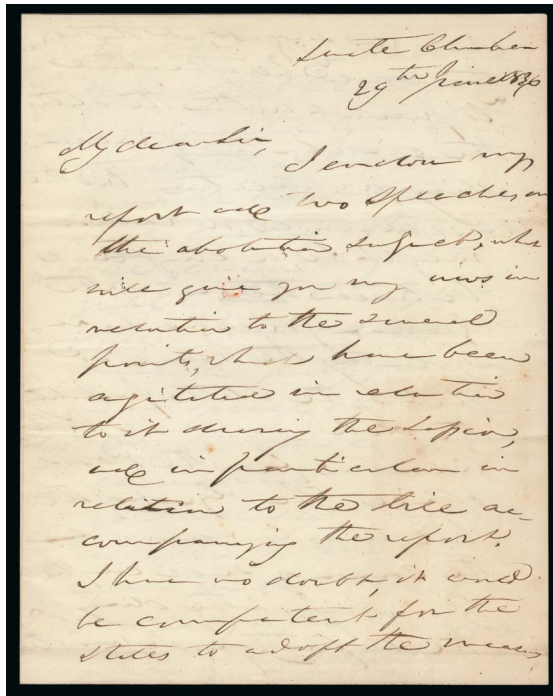 Senate Chamber
29th June 1836
My dear Sir,
I enclose my
report and two speeches on
the abolition subject, which
will give you my views in
relation to the several
points, which have been
agitated in relation
to it during the Session,
and in particular in
relation to the bill ac-
companying the report.
I have no doubt, it would
be competent for the
States to adopt the means,